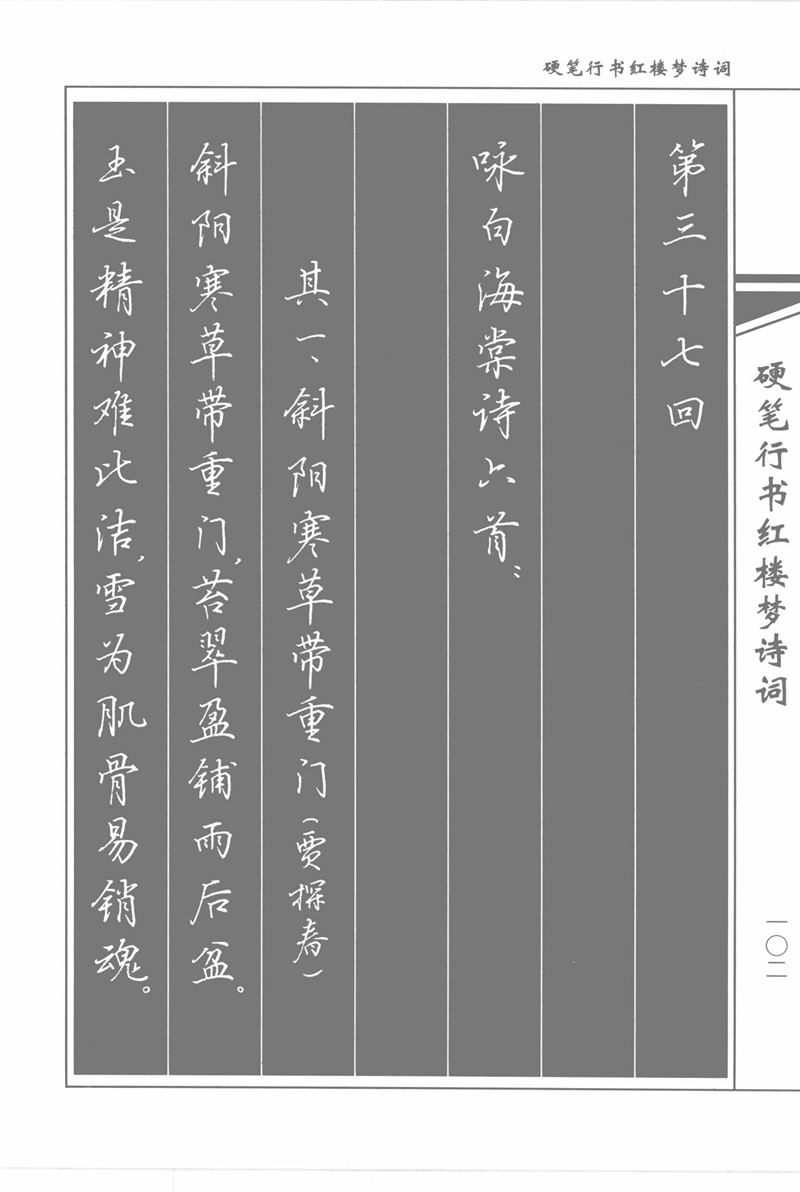 硬笔行书红楼梦诗词
第三十七回
咏白海棠诗六首：
其一、斜阳寒草带重门（贾探春）
斜阳寒草带重门，苔翠盈铺雨后盆。
玉是精神难比洁，雪为肌骨易销魂。
硬笔行书红楼梦诗词
一〇二